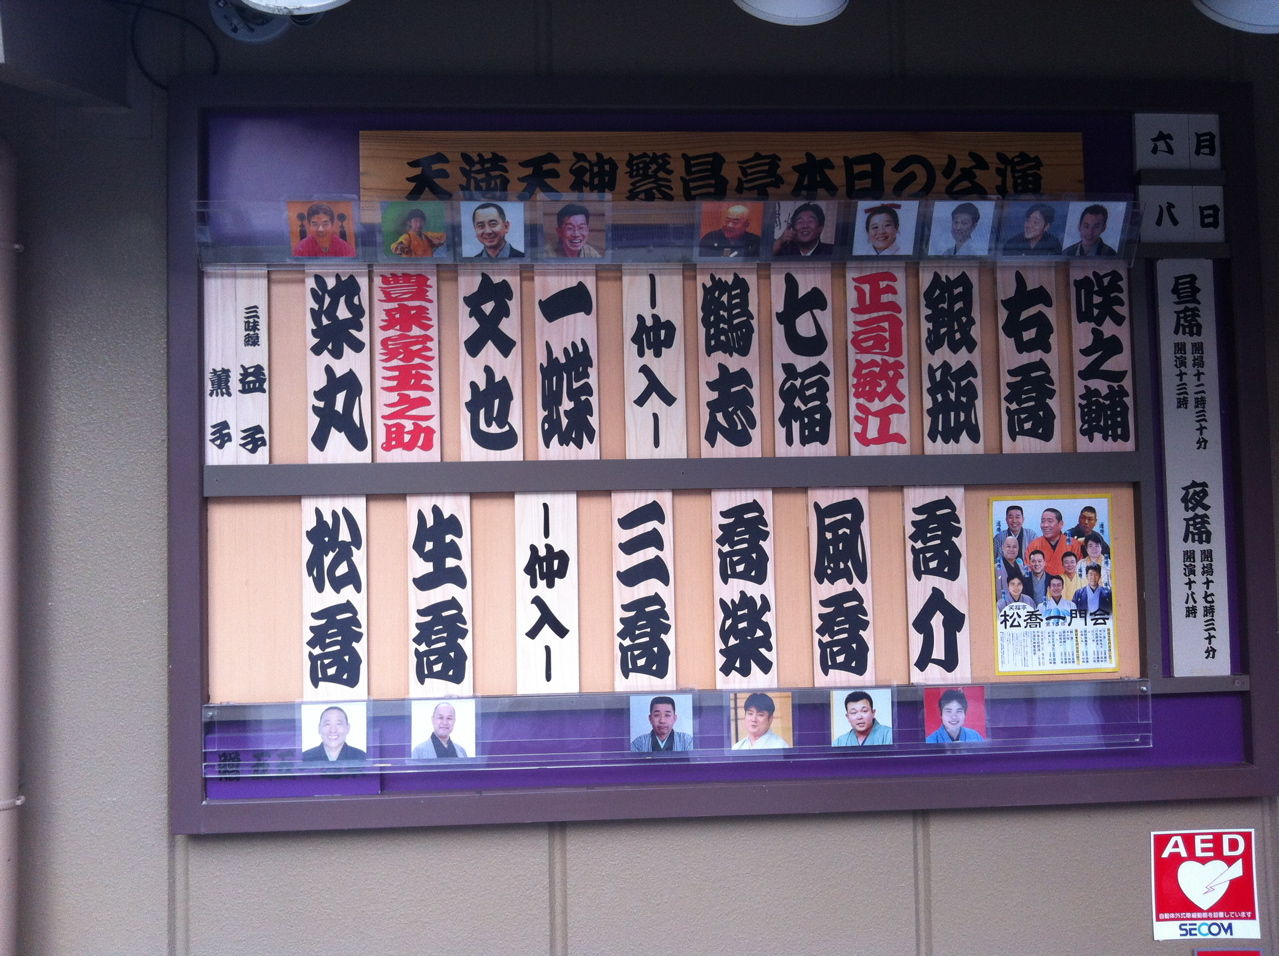 天満天神繁昌亭本日の公演
六月
八日
昼席 開場十二時三十分 開演十三時
夜席 開場十七時三十分 開演十八時
咲之輔
右喬
銀瓶
正司敏江
七福
鶴志
仲入
一蝶
文也
豊来家玉之助
染丸
三味線
益子
薫子
喬介
風喬
喬楽
三喬
仲入
生喬
松喬
笑福亭
松喬一門会
AED
自動体外式除細動器を設置しています
SECOM